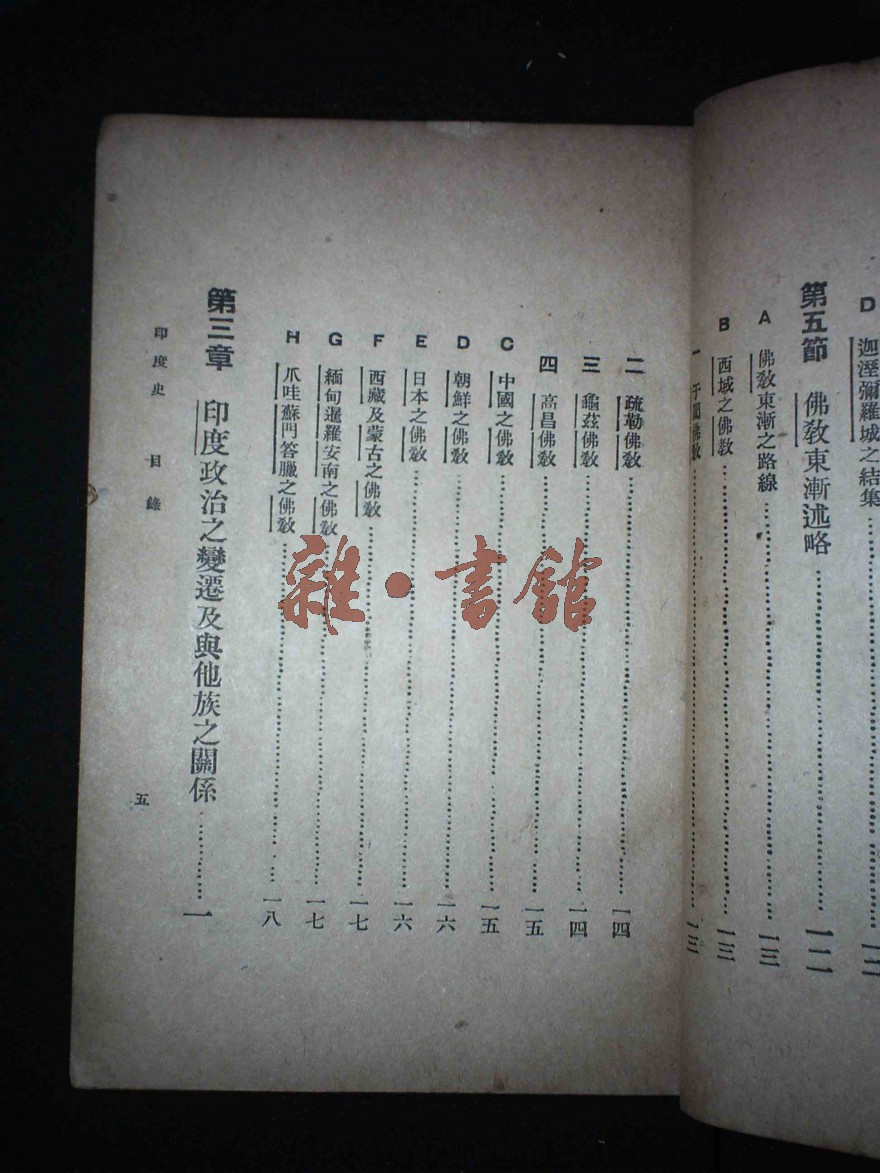 D 迦溼彌羅城之結集……一二
第五節 佛敎東漸述略……一二
A 佛敎東漸之路線……一三
B 西域之佛敎……一三
一 于闐佛敎……一三
二 疏勒佛敎……一四
三 龜茲佛敎……一四
四 高昌佛敎……一五
C 中國之佛敎……一五
D 朝鮮之佛敎……一六
E 日本之佛敎……一六
F 西藏及蒙古之佛敎……一七
G 緬甸暹羅安南之佛敎……一七
H 爪哇蘇門答臘之佛敎……一八
第三章 印度政治之變遷及與他族之關係……一
印度史 目錄 五
雜·書館